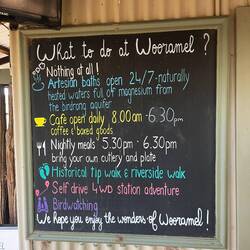 What to do at Wooramel ?
Nothing at all!
Artesian baths open 24/7-naturally
heated waters full of magnesium from
the birdrong aquifer
Cafe open daily 8.00am - 6.30pm
coffee & baked goods
Nightly meals 5.30pm - 6.30pm
bring your own cutlery and plate
Historical tip walk & riverside walk
Self drive 4WD station adventure
Birdwatching
We hope you enjoy the wonders of Wooramel!